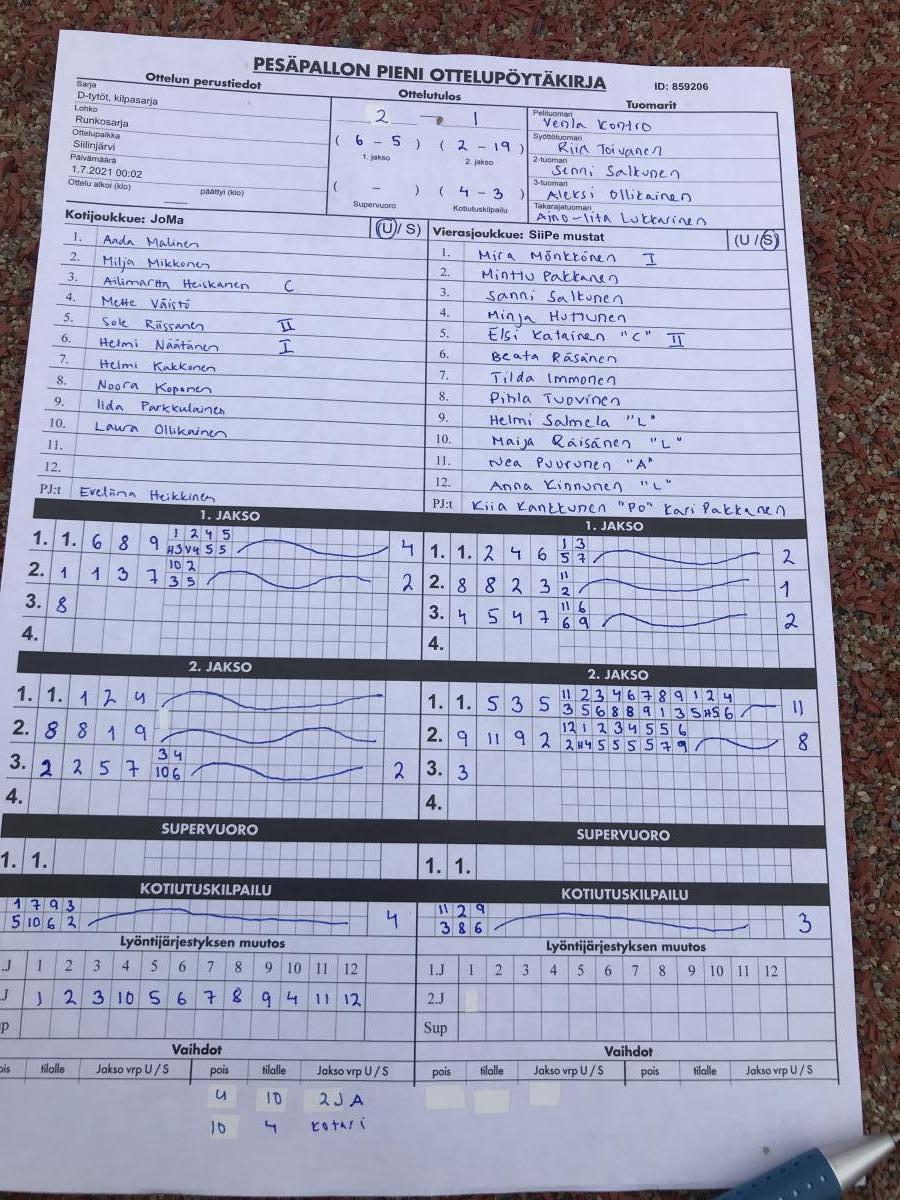 PESÄPALLON PIENI OTTELUPÖYTÄKIRJA
ID: 859206
Ottelun perustiedot
Sarja
D-tytöt, kilpasarja
Lohko
Runkosarja
Ottelupaikka
Siilinjärvi
Päivämäärä
1.7.2021 00:02
Ottelu alkoi (klo) päättyi (klo)
Ottelutulos
2 - 1
( 6 - 5 ) ( 2 - 19 )
1. jakso 2. jakso
( - ) ( 4 - 3 )
Supervuoro Kotiutuskilpailu
Tuomarit
Pelituomari
Venla Kontro
Syöttötuomari
Riia Toivanen
2-tuomari
Senni Salkunen
3-tuomari
Aleksi Ollikainen
Takarajatuomari
Aino-Iita Lukkarinen
Kotijoukkue: JoMa (U / S)
1. Aada Malinen
2. Milja Mikkonen
3. Ailimartta Heiskanen C
4. Mette Väistö
5. Sole Riissanen II
6. Helmi Näätänen I
7. Helmi Kakkonen
8. Noora Koponen
9. Iida Parkkulainen
10. Laura Ollikainen
11.
12.
PJ:t Eveliina Heikkinen
Vierasjoukkue: SiiPe mustat (U / S)
1. Mira Mönkkönen I
2. Minttu Pakkanen
3. Sanni Salkunen
4. Minja Huttunen
5. Elsi Katainen "C" II
6. Beata Räsänen
7. Tilda Immonen
8. Pihla Tuovinen
9. Helmi Salmela "L"
10. Maija Räisänen "L"
11. Nea Puurunen "A"
12. Anna Kinnunen "L"
PJ:t Kiia Kankkunen "PO" Kari Pakkanen
1. JAKSO
1. 1. 6 8 9 1 2 4 5 4
H3 V4 5 5
2. 1 1 3 7 10 2 2
3 5
3. 8
4.
1. JAKSO
1. 1. 2 4 6 1 3 2
5 7
2. 8 8 2 3 11 1
2
3. 4 5 4 7 11 6 2
6 9
4.
2. JAKSO
1. 1. 1 2 4
2. 8 8 1 9
3. 2 2 5 7 3 4 2
10 6
4.
2. JAKSO
1. 1. 5 3 5 11 2 3 4 6 7 8 9 1 2 4 11
3 5 6 8 8 9 1 3 5 H5 6
2. 9 11 9 2 12 1 2 3 4 5 5 6 8
2 H4 5 5 5 5 7 9
3. 3
4.
SUPERVUORO
1. 1.
SUPERVUORO
1. 1.
KOTIUTUSKILPAILU
1 7 9 3 4
5 10 6 2
KOTIUTUSKILPAILU
11 2 9 3
3 8 6
Lyöntijärjestyksen muutos
.J 1 2 3 4 5 6 7 8 9 10 11 12
J 1 2 3 10 5 6 7 8 9 4 11 12
p
Lyöntijärjestyksen muutos
1.J 1 2 3 4 5 6 7 8 9 10 11 12
2.J
Sup
Vaihdot
ois tilalle Jakso vrp U / S pois tilalle Jakso vrp U / S
4 10 2J A
10 4 Kotari
Vaihdot
pois tilalle Jakso vrp U / S pois tilalle Jakso vrp U / S